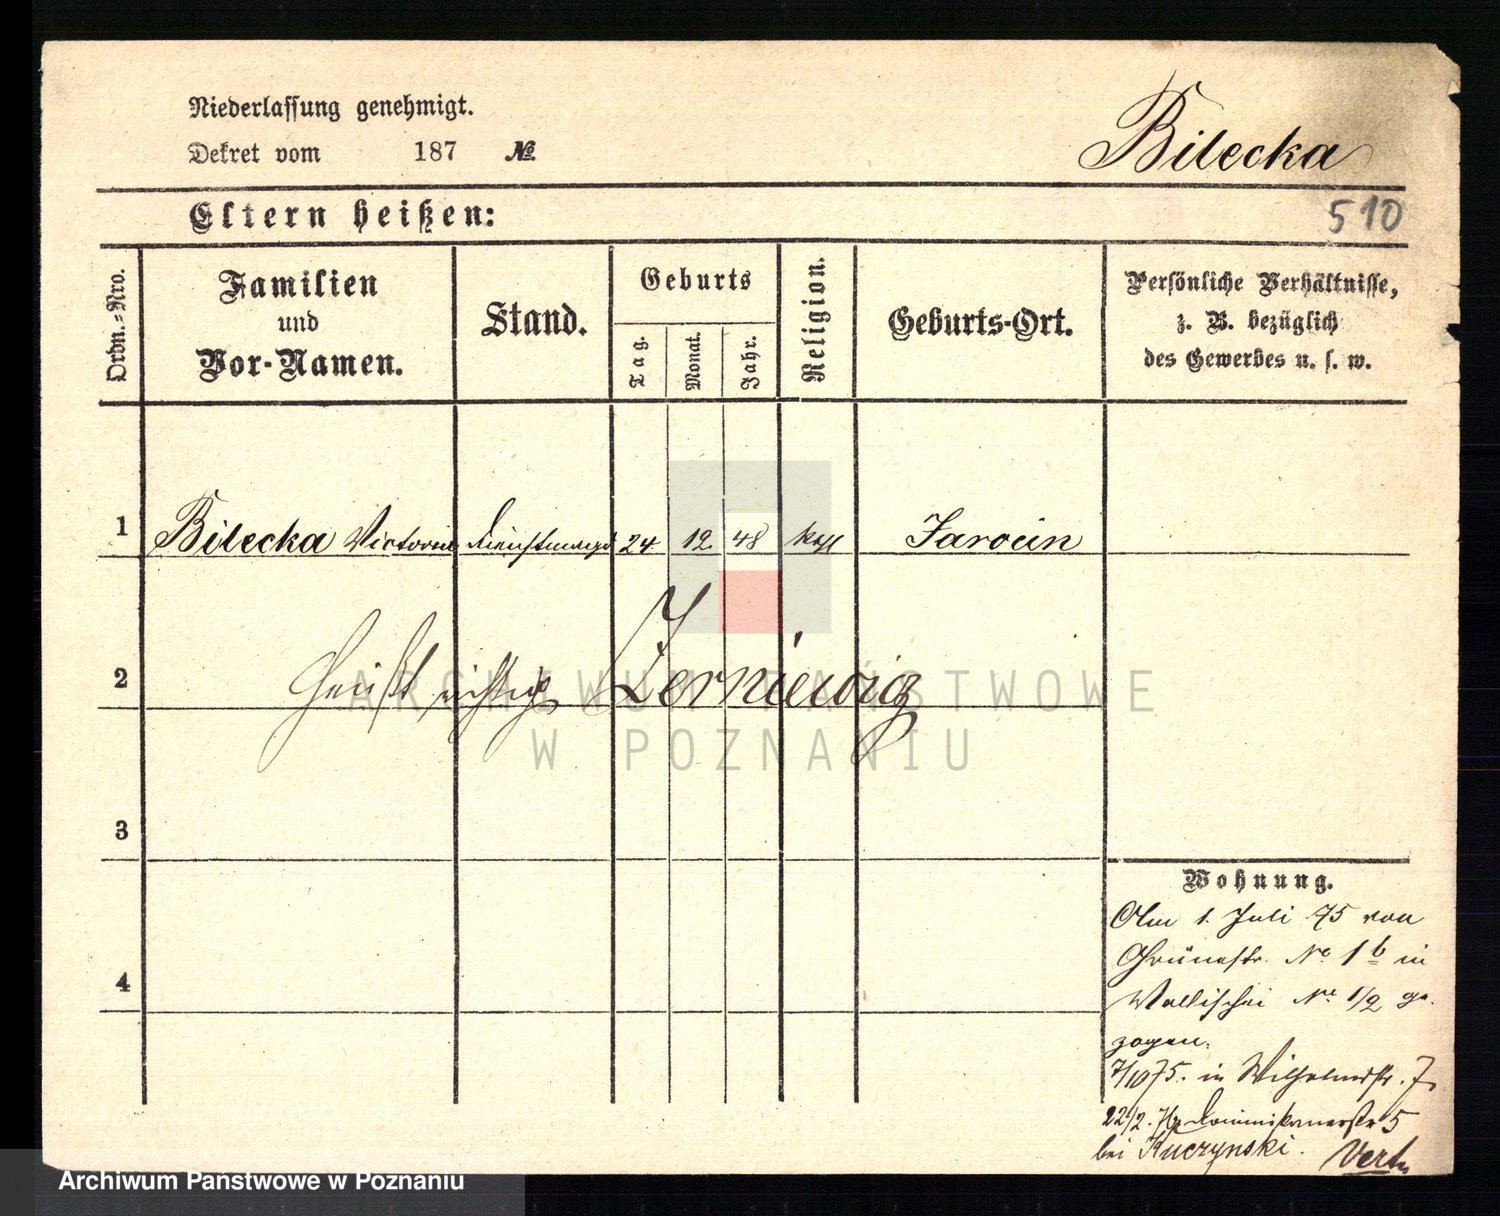 Niederlassung genehmigt.
Dekret vom 187 №
Bilecka
Eltern heißen:
510
Ordn.-Nro.
Familien
und
Vor-Namen.
Stand.
Geburts
Tag.
Monat.
Jahr.
Religion.
Geburts-Ort.
Persönliche Verhältnisse,
z. B. bezüglich
des Gewerbes u. s. w.
1 Bilecka Victoria Dienstmagd 24 12. 48 kath Jarocin
2 heißt richtig
3
4
Wohnung.
Am 1. Juli 75 von
Grünestr. No 1b in
Wallischei No 1/2 ge-
zogen.
7/10 75. in Wilhelmstr. 7.
22/2. 76 Dominikanerstr 5
bei Kuczynski.
ARCHIWUM PAŃSTWOWE
W POZNANIU
Archiwum Państwowe w Poznaniu